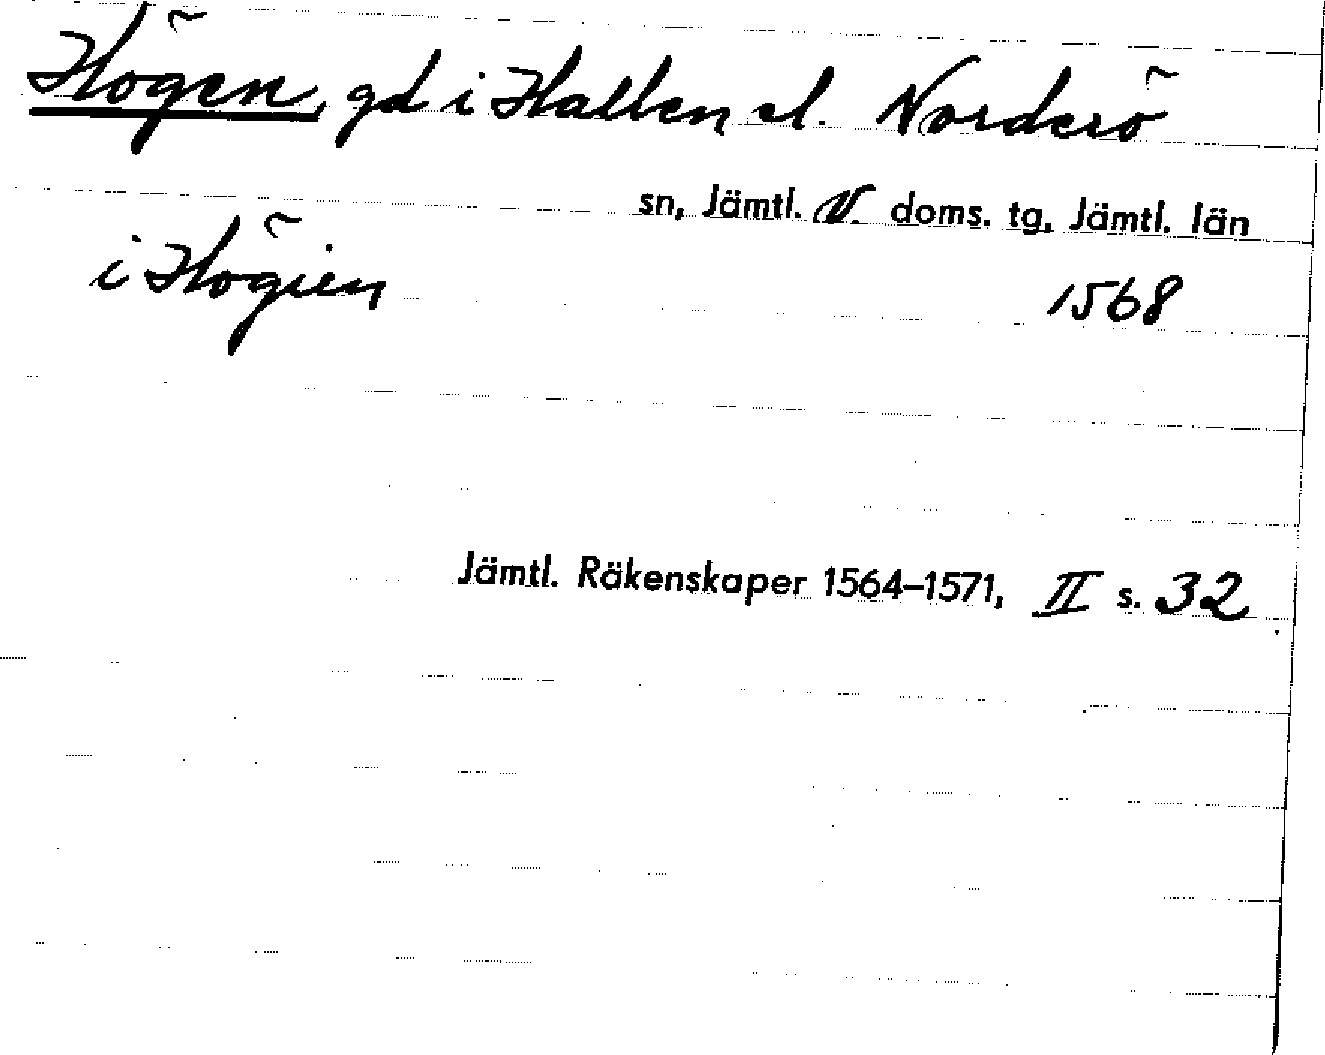 Högen, gd i Hallen el. Norderö
sn, Jämtl. V. doms. tg, Jämtl. län
i Högien 1568
Jämtl. Räkenskaper 1564–1571, II s. 32